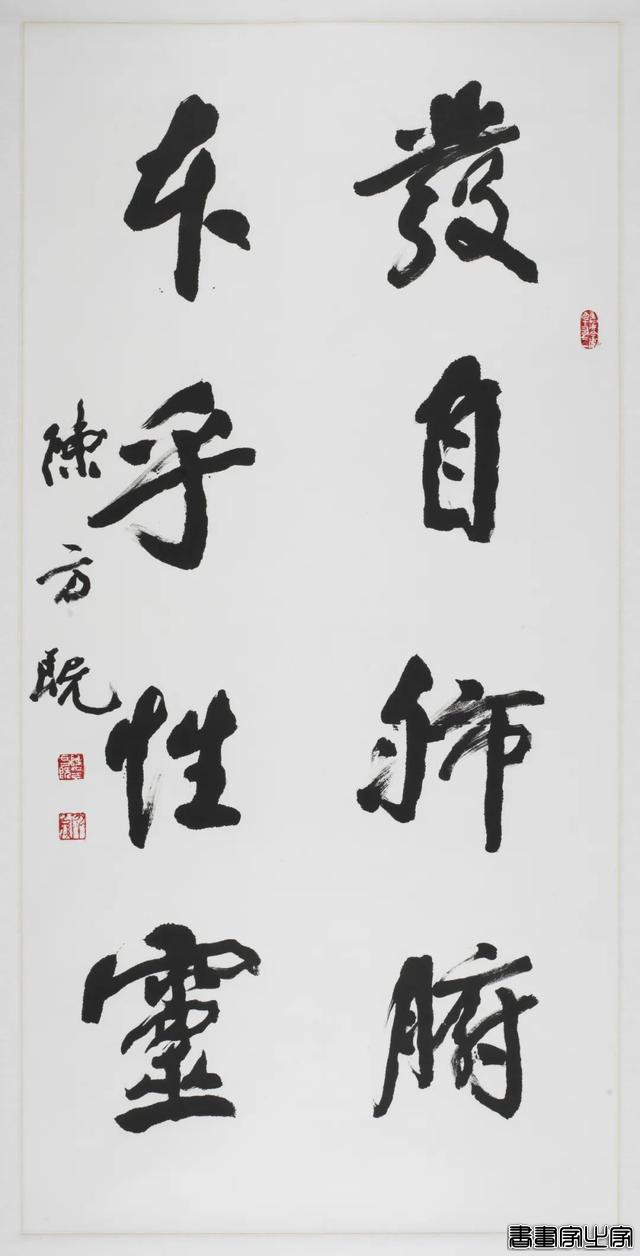 發自肺腑
本乎性靈
陳方既
書畫家之家